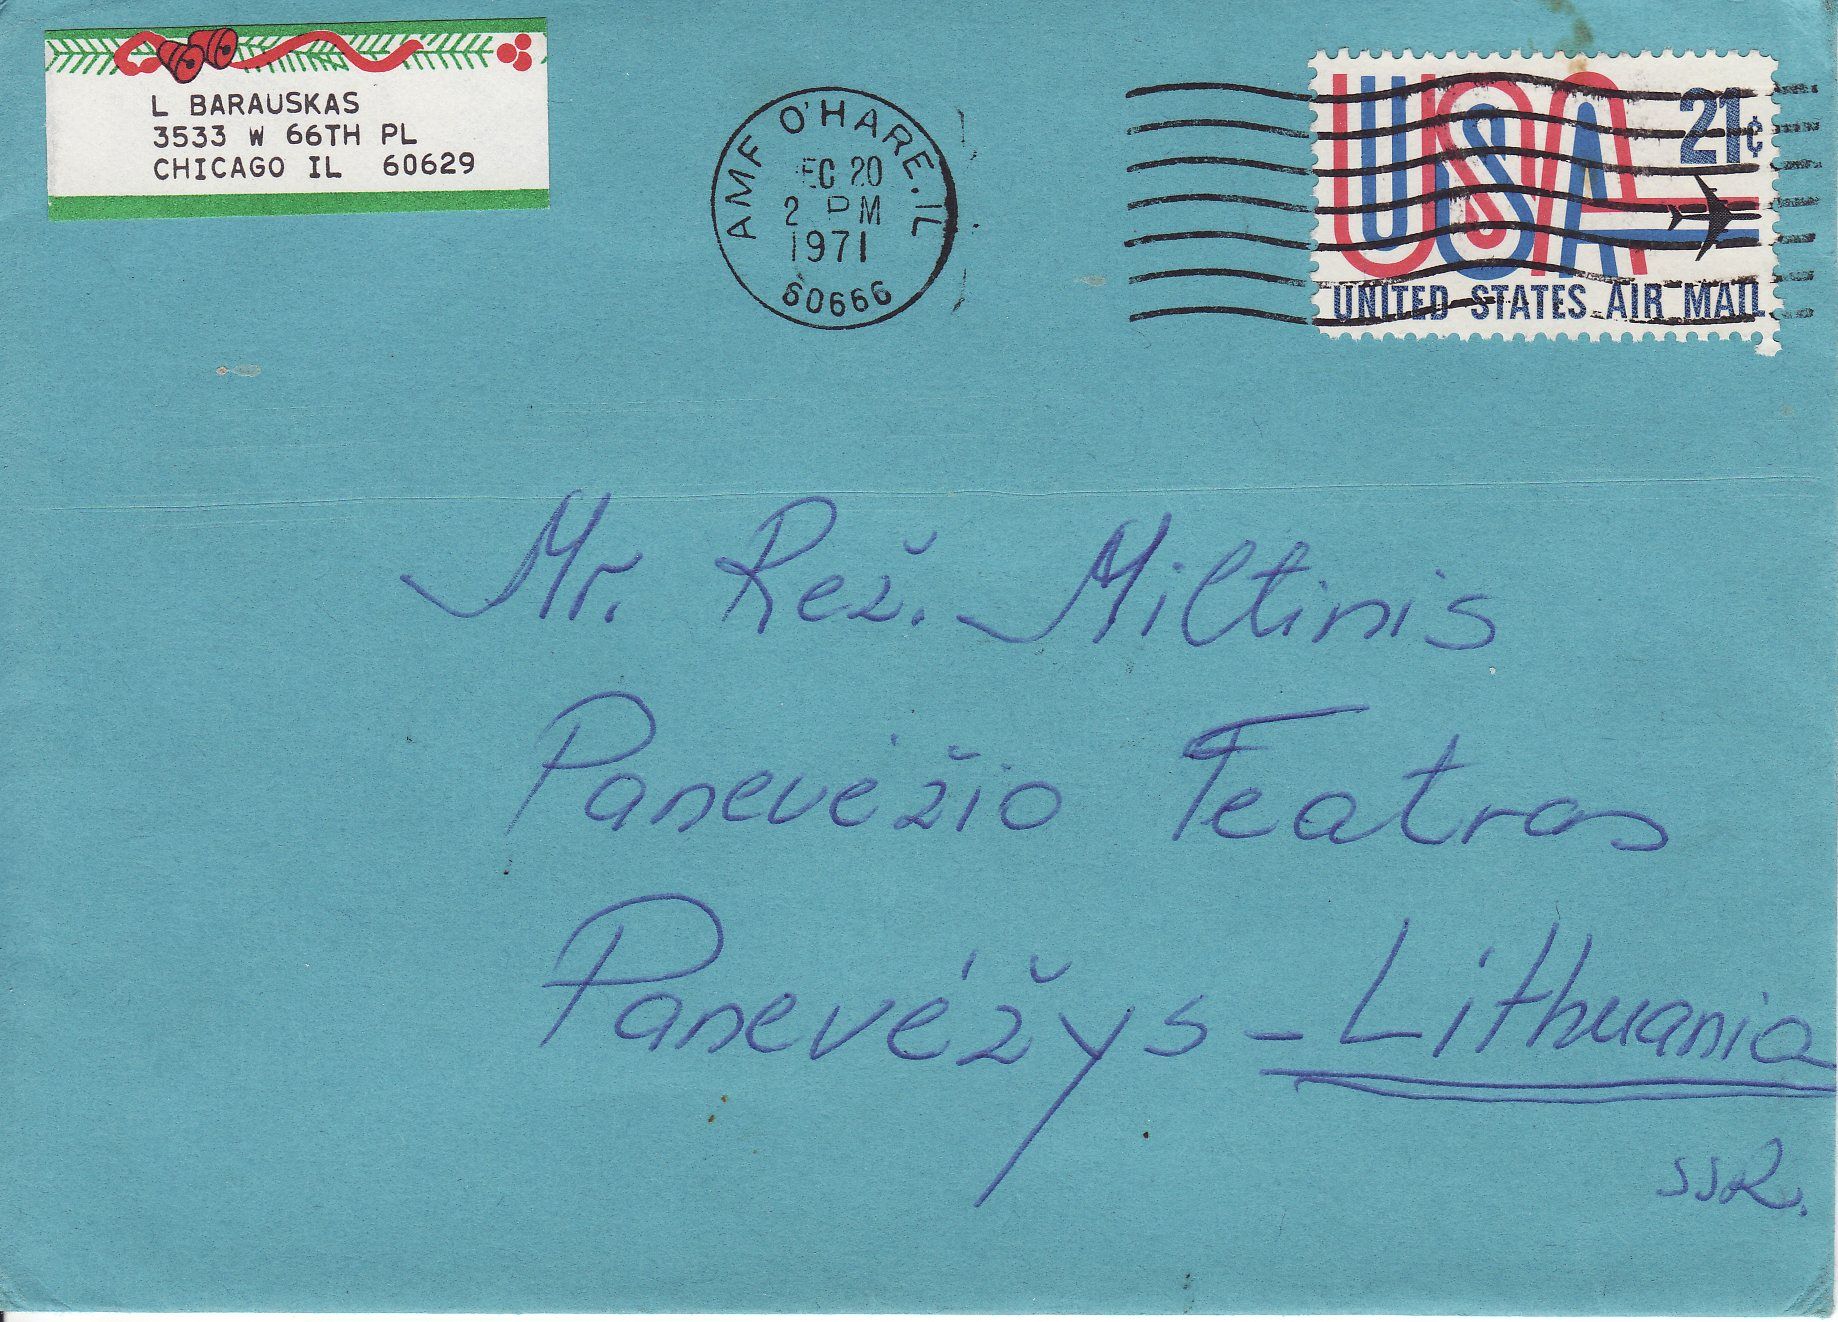 L BARAUSKAS
3533 W 66TH PL
CHICAGO IL 60629
AMF O'HARE. IL
EC 20
2 PM
1971
60666
USA 21¢
UNITED STATES AIR MAIL
Mr. Rež. Miltinis
Panevėžio Teatras
Panevėžys - Lithuania
SSR.